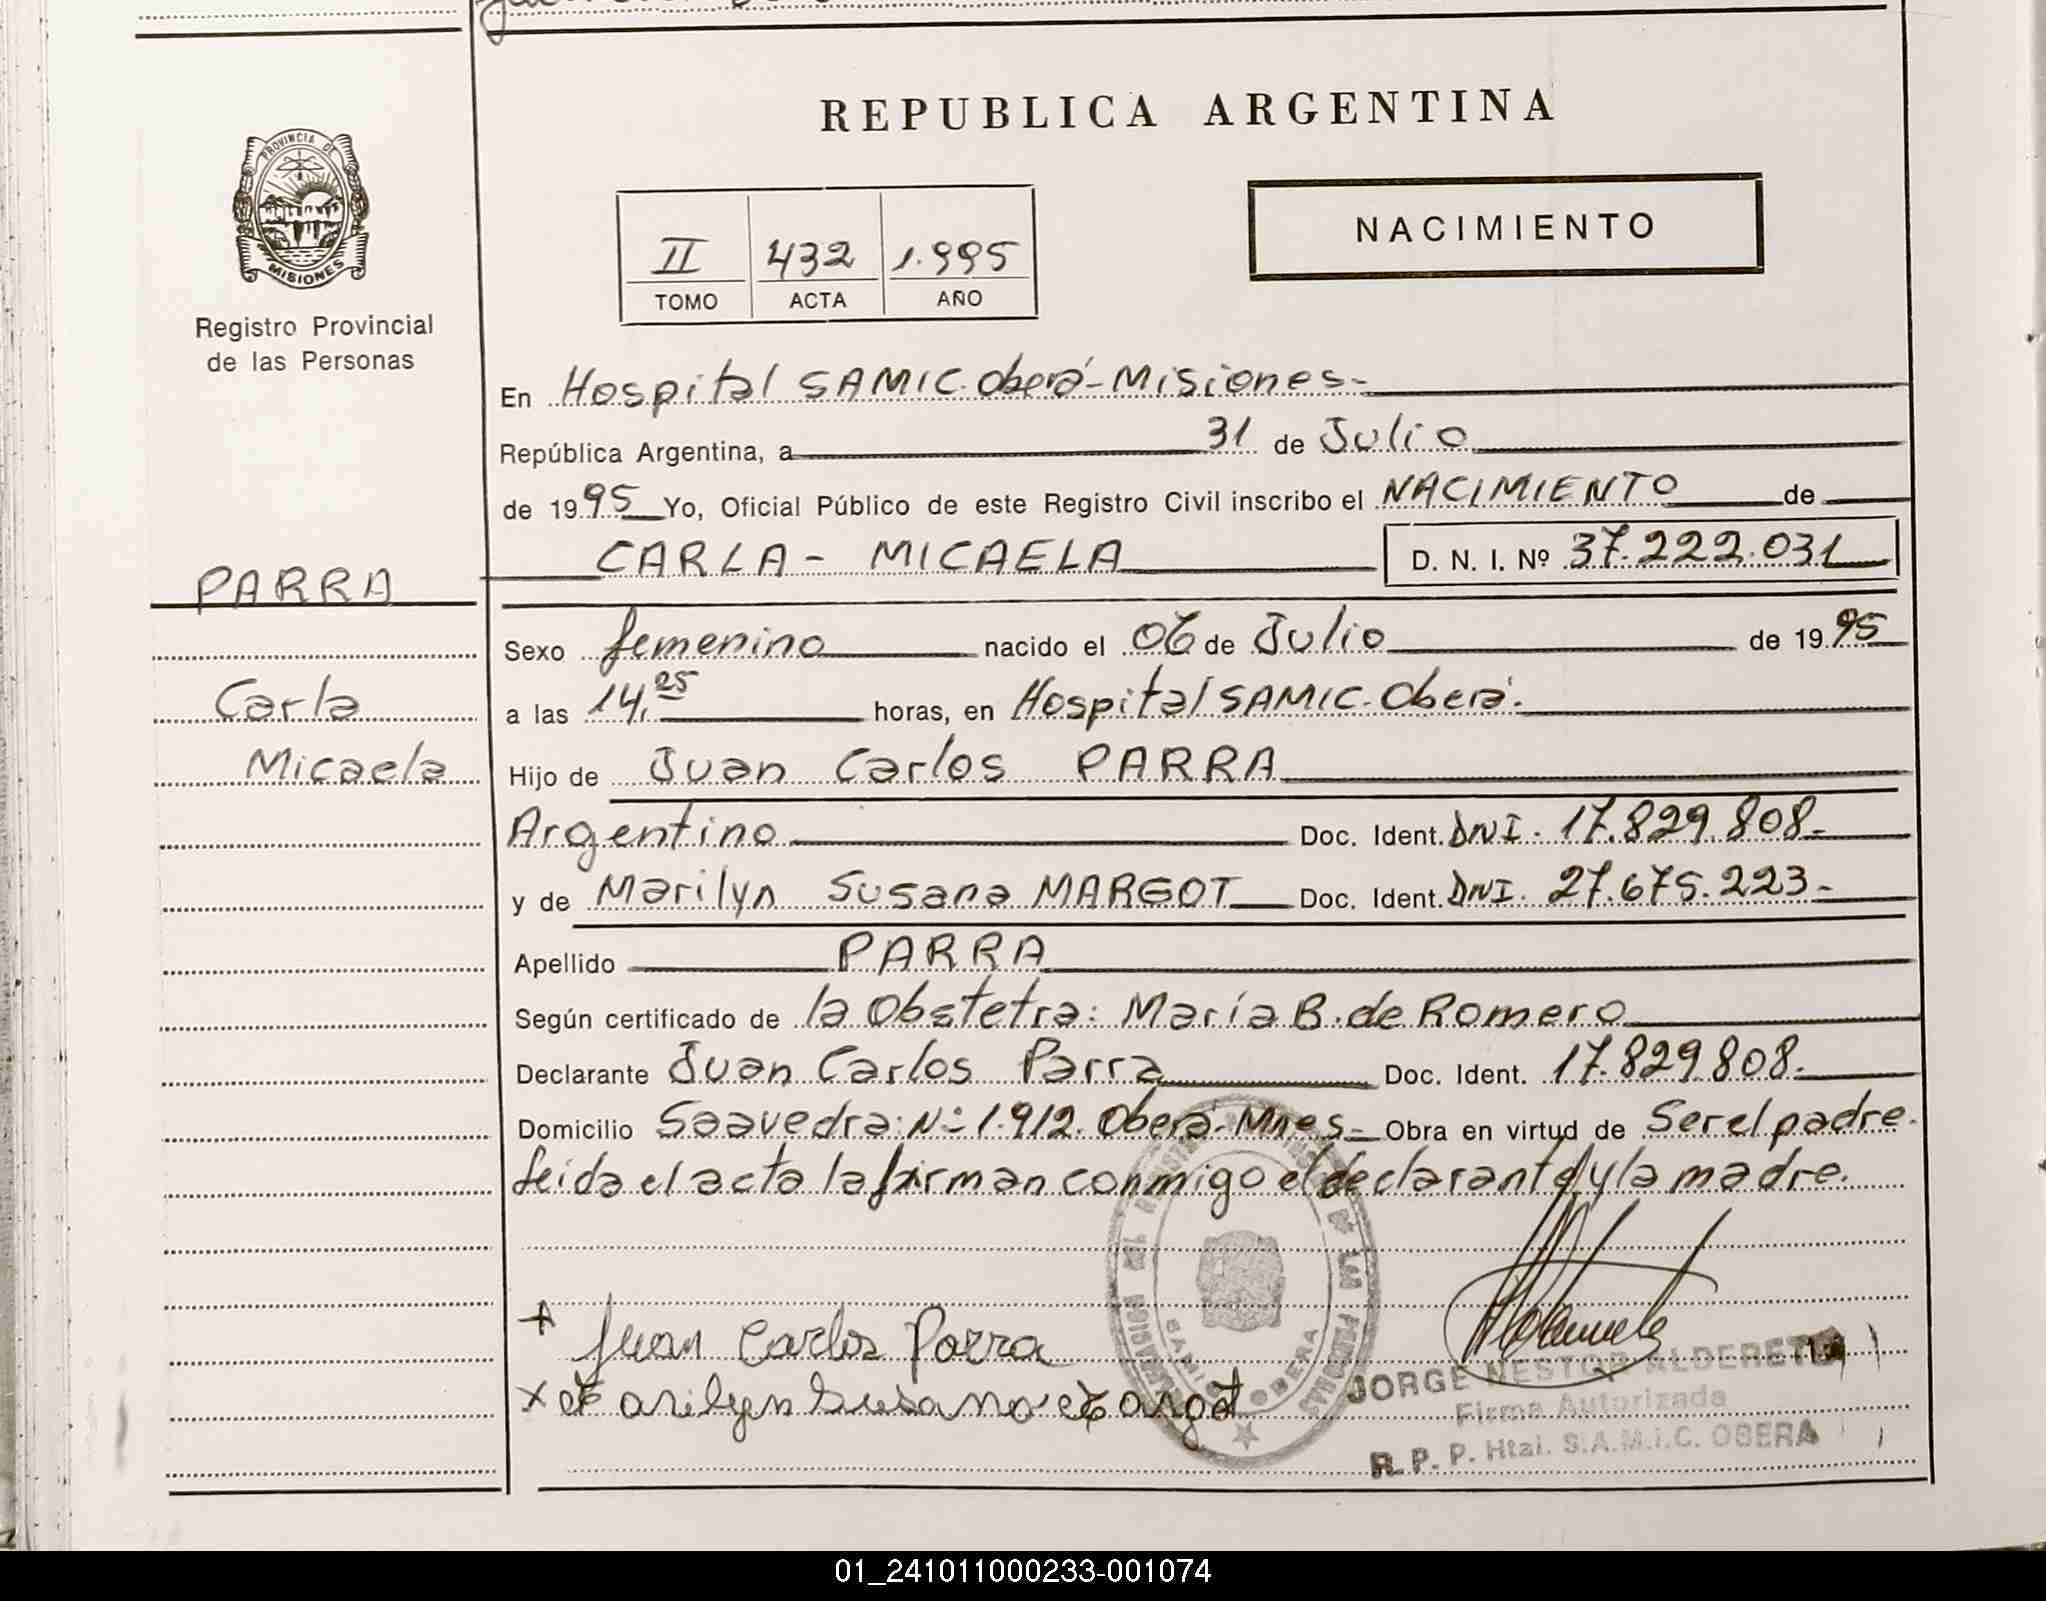 REPUBLICA ARGENTINA
PROVINCIA DE
MISIONES
Registro Provincial
de las Personas
II 432 1.995
TOMO ACTA AÑO
NACIMIENTO
En Hospital SAMIC. Oberá - Misiones.-
República Argentina, a 31 de Julio
de 1995 Yo, Oficial Público de este Registro Civil inscribo el NACIMIENTO de
CARLA - MICAELA D. N. I. Nº 37.222.031
PARRA
Carla
Micaela
Sexo femenino nacido el 06 de Julio de 1995
a las 14,25 horas, en Hospital SAMIC. Oberá.
Hijo de Juan Carlos PARRA
Argentino Doc. Ident. DNI. 17.829.808-
y de Marilyn Susana MARGOT Doc. Ident. DNI. 27.675.223-
Apellido PARRA
Según certificado de la Obstetra: María B. de Romero
Declarante Juan Carlos Parra Doc. Ident. 17.829.808.
Domicilio Saavedra: N:- 1.912. Oberá. Mnes- Obra en virtud de Ser el padre.
leida el acta la firman conmigo el declarante y la madre.
+ Juan Carlos Parra
x Marilyn Susana Margot
SAMIC OBERA
JORGE NESTOR ALDERETE
Firma Autorizada
R. P. P. Htal. S.A.M.I.C. OBERA
01_241011000233-001074